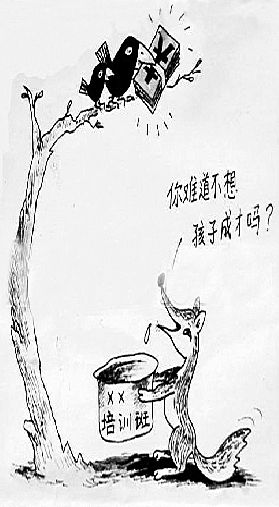 你难道不想
孩子成才吗？
××
培训班